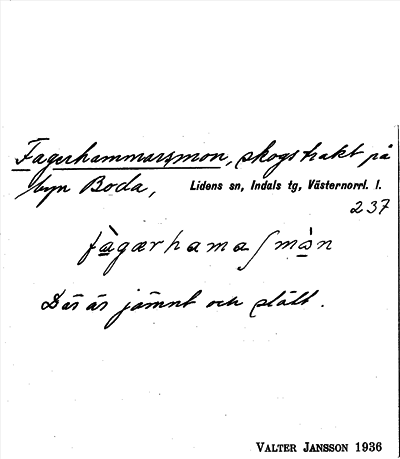 Fagerhammarsmon, skogstrakt på
byn Boda, Lidens sn, Indals tg, Västernorrl. l.
237
fàgærhamaʃmån
Där är jämnt och slätt.
VALTER JANSSON 1936